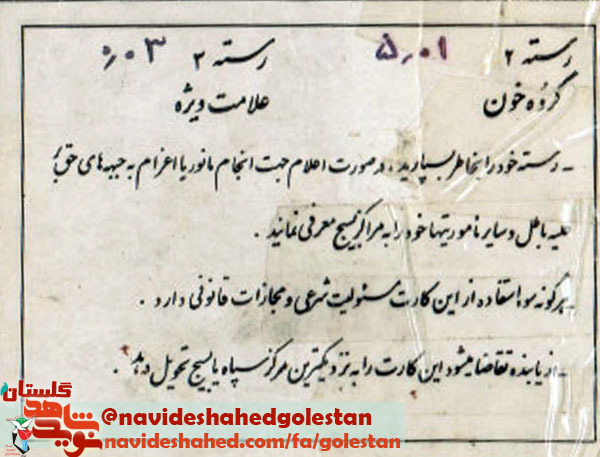 رسته ۲ ۵٫۰۱ رسته ۲ ۵٫۰۳
گروه خون علامت ویژه
- رسته خود را بخاطر بسپارید، در صورت اعلام جهت انجام مانور یا اعزام به جبهه های حق
علیه باطل و سایر ماموریتها خود را به مراکز بسیج معرفی نمائید.
- هرگونه سوء استفاده از این کارت مسئولیت شرعی و مجازات قانونی دارد.
- از یابنده تقاضا میشود این کارت را به نزدیکترین مرکز سپاه یا بسیج تحویل دهد.
گلستان
نوید شاهد
@navideshahedgolestan
navideshahed.com/fa/golestan